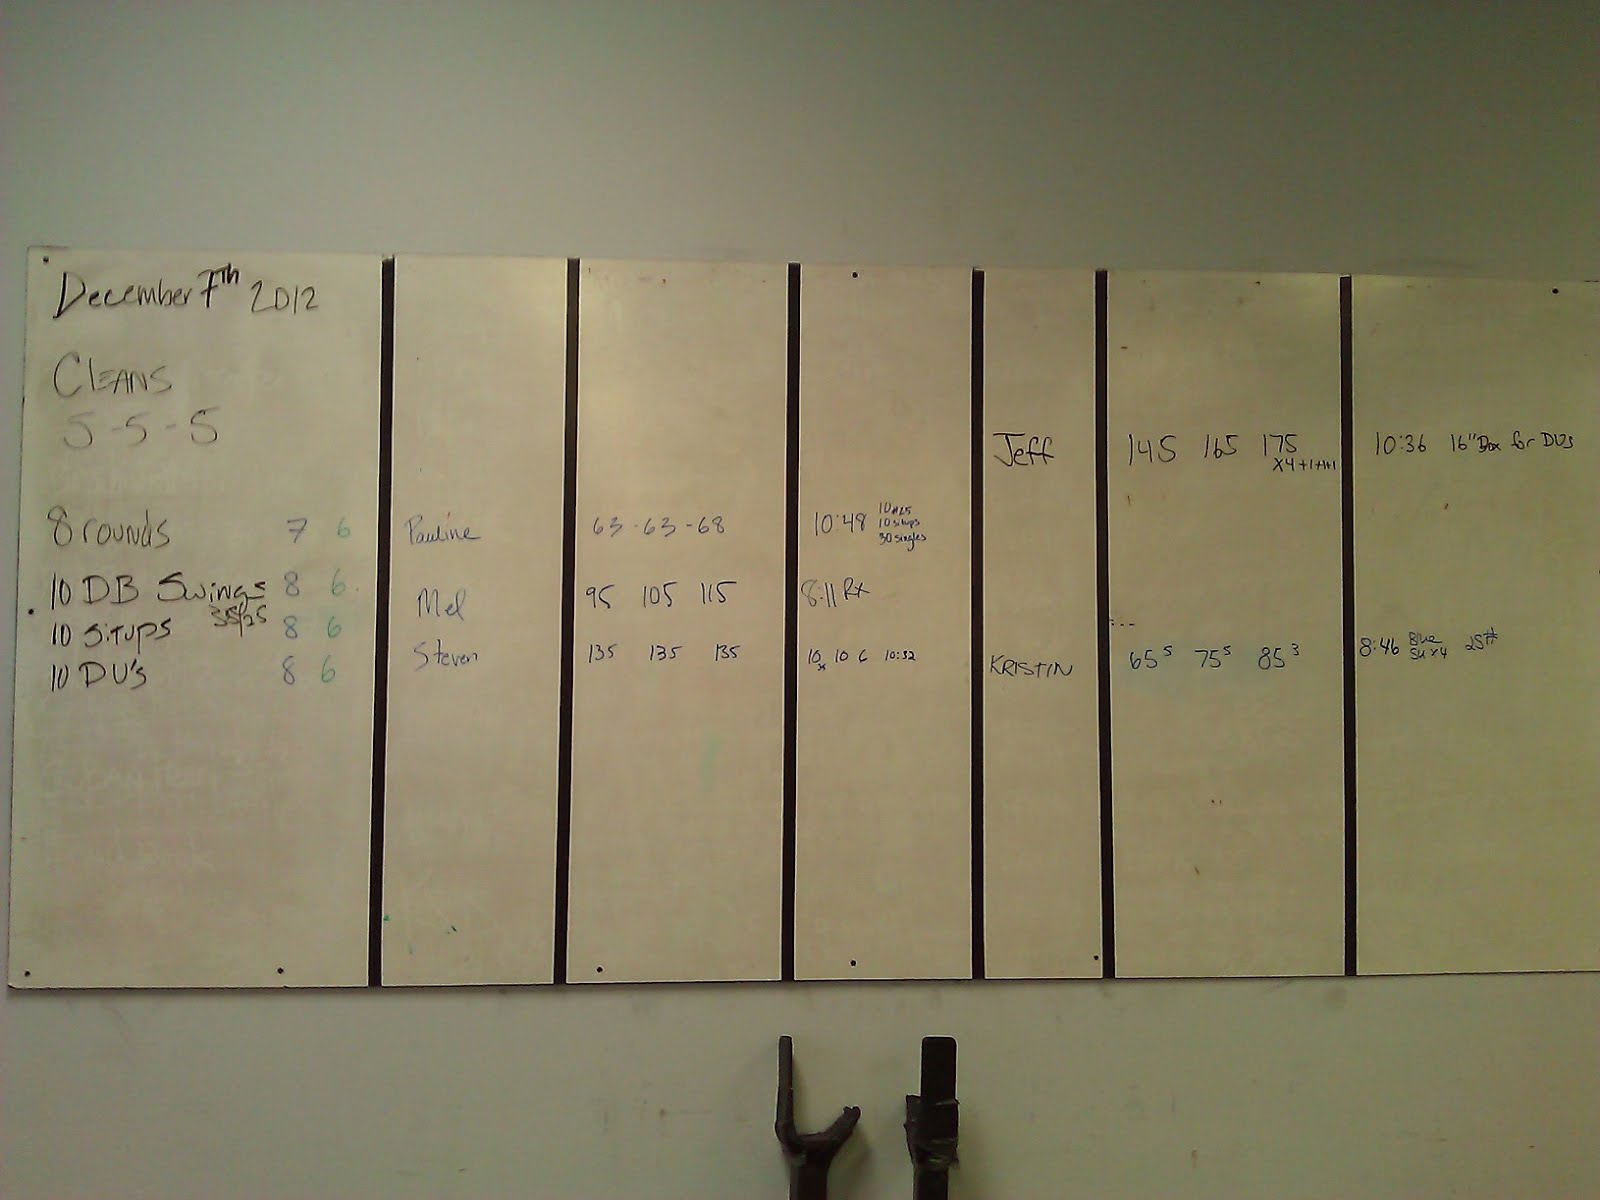 December 7th 2012
CLEANS
5-5-5
8 rounds 7 6
10 DB Swings 8 6
35/25
10 SITUPS 8 6
10 DU's 8 6
Pauline 63-63-68 10:48
10 situps
30 singles
Mel 95 105 115 8:11 Rx
Steven 135 135 135 10 10 6 10:52
Jeff 145 165 175 10:36 16" Box for DUs
X4+1+1+1
KRISTIN 65 5 75 5 85 3 8:46 Blue 25#